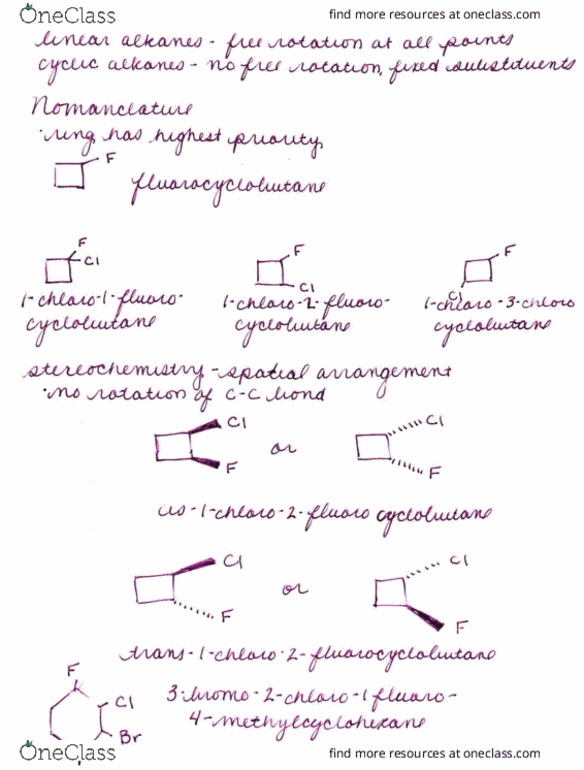 OneClass
find more resources at oneclass.com
linear alkanes - free rotation at all points
cyclic alkanes - no free rotation, fixed substituents
Nomanclature
·ring has highest priority
F
fluorocyclobutane
F
Cl
F
Cl
F
Cl
1-chloro-1-fluoro-
cyclobutane
1-chloro-2-fluoro-
cyclobutane
1-chloro-3-chloro
cyclobutane
stereochemistry - spatial arrangement
·no rotation of C-C bond
Cl
F
or
Cl
F
cis-1-chloro-2-fluoro cyclobutane
Cl
F
or
Cl
F
trans-1-chloro-2-fluorocyclobutane
F
Cl
Br
3-bromo-2-chloro-1 fluoro-
4-methylcyclohexane
OneClass
find more resources at oneclass.com